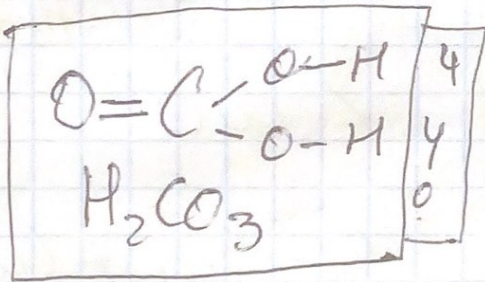 O=C
O-H
O-H
H₂CO₃
4
у
0